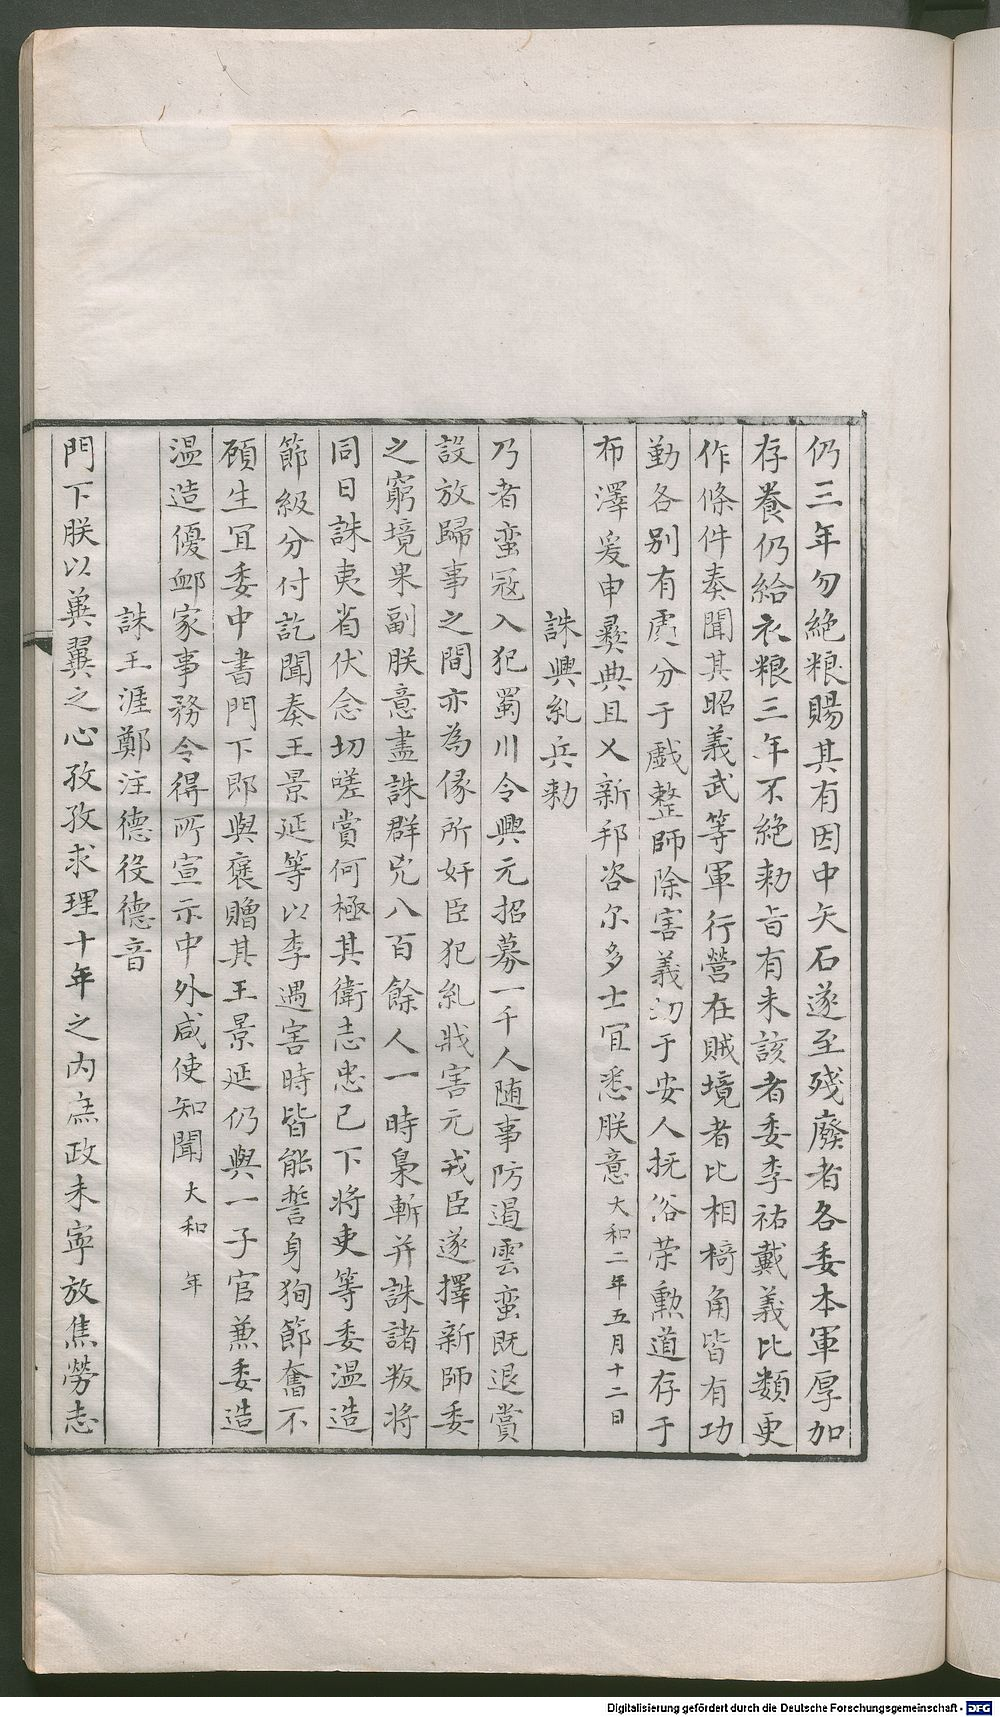 仍三年勿絶粮賜其有因中矢石遂至殘廢者各委本軍厚加
存養仍給衣粮三年不絶勅旨有未該者委李祐戴義比類更
作條件奏聞其昭義武等軍行營在賊境者比相犄角皆有功
勤各別有處分于戲整師除害義切于安人抚俗荣勲道存于
布澤爰申彛典且乂新邦咨尔多士宜悉朕意大和二年五月十二日
誅興乱兵勅
乃者蛮冦入犯蜀川令興元招募一千人随事防遏雲蛮既退賞
設放歸事之間亦為俻所奸臣犯乱戕害元戎臣遂擇新師委
之窮境果副朕意盡誅群兇八百餘人一時梟斬并誅諸叛將
同日誅夷省伏念切嗟賞何極其衛志忠已下將吏等委温造
節級分付訖聞奏王景延等以李遇害時皆能誓身狥節奮不
顧生宜委中書門下即與褒贈其王景延仍與一子官兼委造
温造優卹家事務令得所宣示中外咸使知聞 大和 年
誅王涯鄭注德役德音
門下朕以兾翼之心孜孜求理十年之內庶政未寧放焦勞志
Digitalisierung gefördert durch die Deutsche Forschungsgemeinschaft - DFG